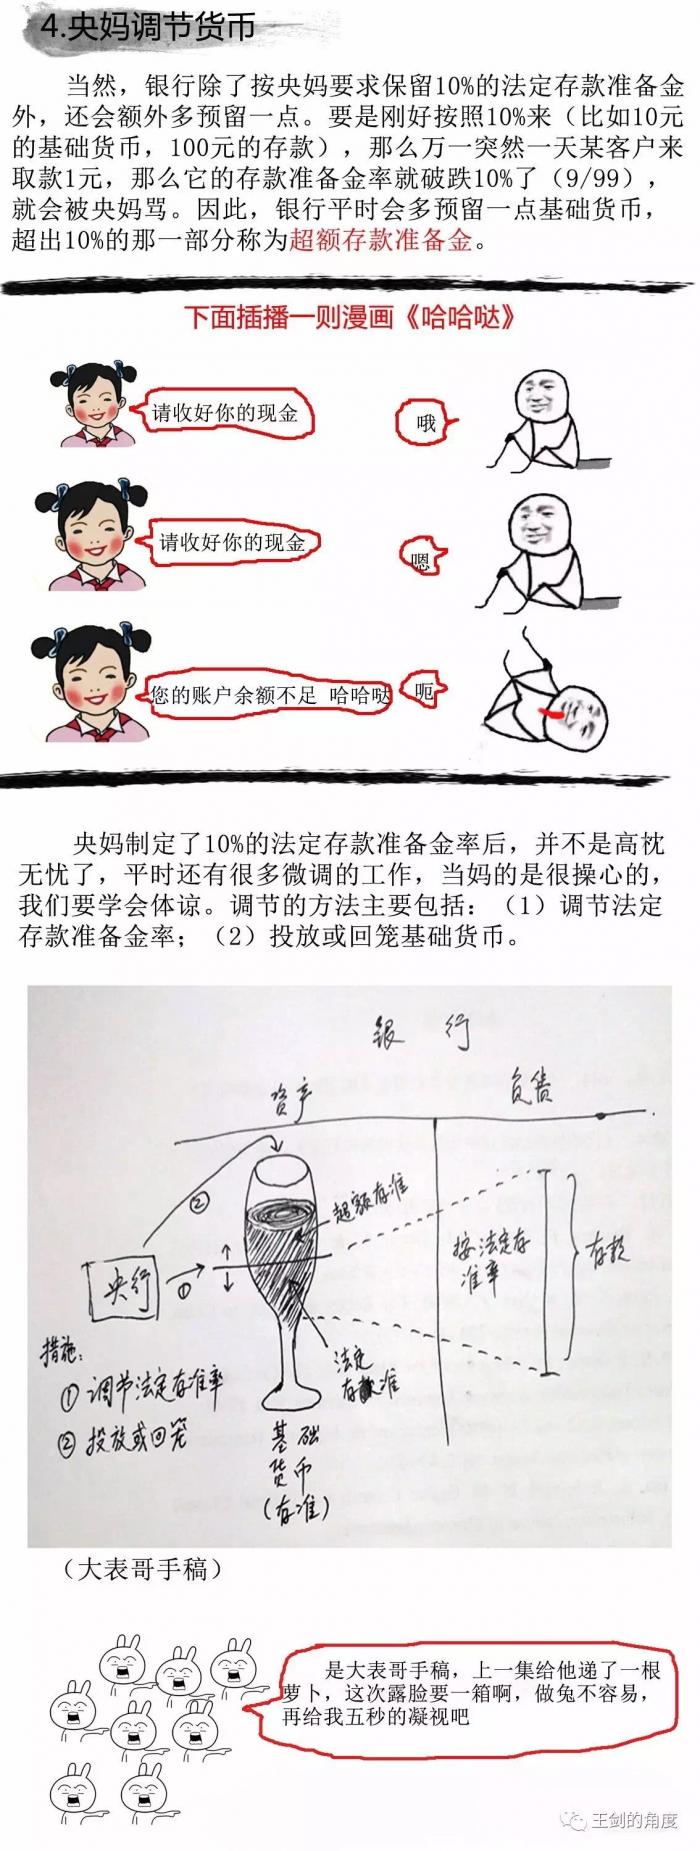 4.央妈调节货币
当然，银行除了按央妈要求保留10%的法定存款准备金
外，还会额外多预留一点。要是刚好按照10%来（比如10元
的基础货币，100元的存款），那么万一突然一天某客户来
取款1元，那么它的存款准备金率就破跌10%了（9/99），
就会被央妈骂。因此，银行平时会多预留一点基础货币，
超出10%的那一部分称为超额存款准备金。
下面插播一则漫画《哈哈哒》
请收好你的现金
哦
请收好你的现金
嗯
您的账户余额不足 哈哈哒
呃
央妈制定了10%的法定存款准备金率后，并不是高枕
无忧了，平时还有很多微调的工作，当妈的是很操心的，
我们要学会体谅。调节的方法主要包括：（1）调节法定
存款准备金率；（2）投放或回笼基础货币。
银行
资产
负债
②
超额存准
央行
①
按法定存
准率
存款
法定
存款准
措施：
①调节法定存准率
②投放或回笼
基础
货币
(存准)
（大表哥手稿）
是大表哥手稿，上一集给他递了一根
萝卜，这次露脸要一箱啊，做兔不容易，
再给我五秒的凝视吧
王剑的角度